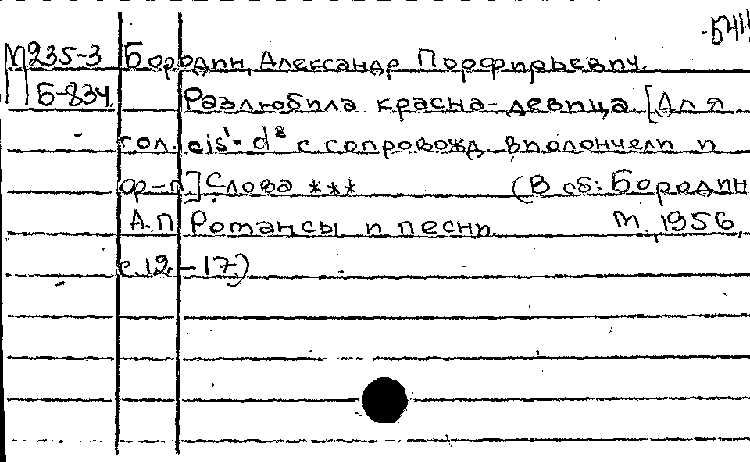 М235-3 Бородин, Александр Порфирьевич.
Б-834 Разлюбила красна-девица [Для
гол. cis¹-d² с сопровожд. виолончели и
ф-п] Слова *** (В сб: Бородин
А.П Романсы и песни М., 1956,
с. 12-17)